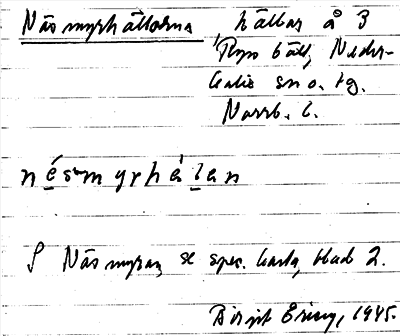 Näsmyrhällorna hällar å 3
Ryss bält, Neder-
Kalix sn o. tg.
Norrb. l.
nésmyrhälan
Näsmyran, se spec. karta, blad 2.
Birgit 1945.